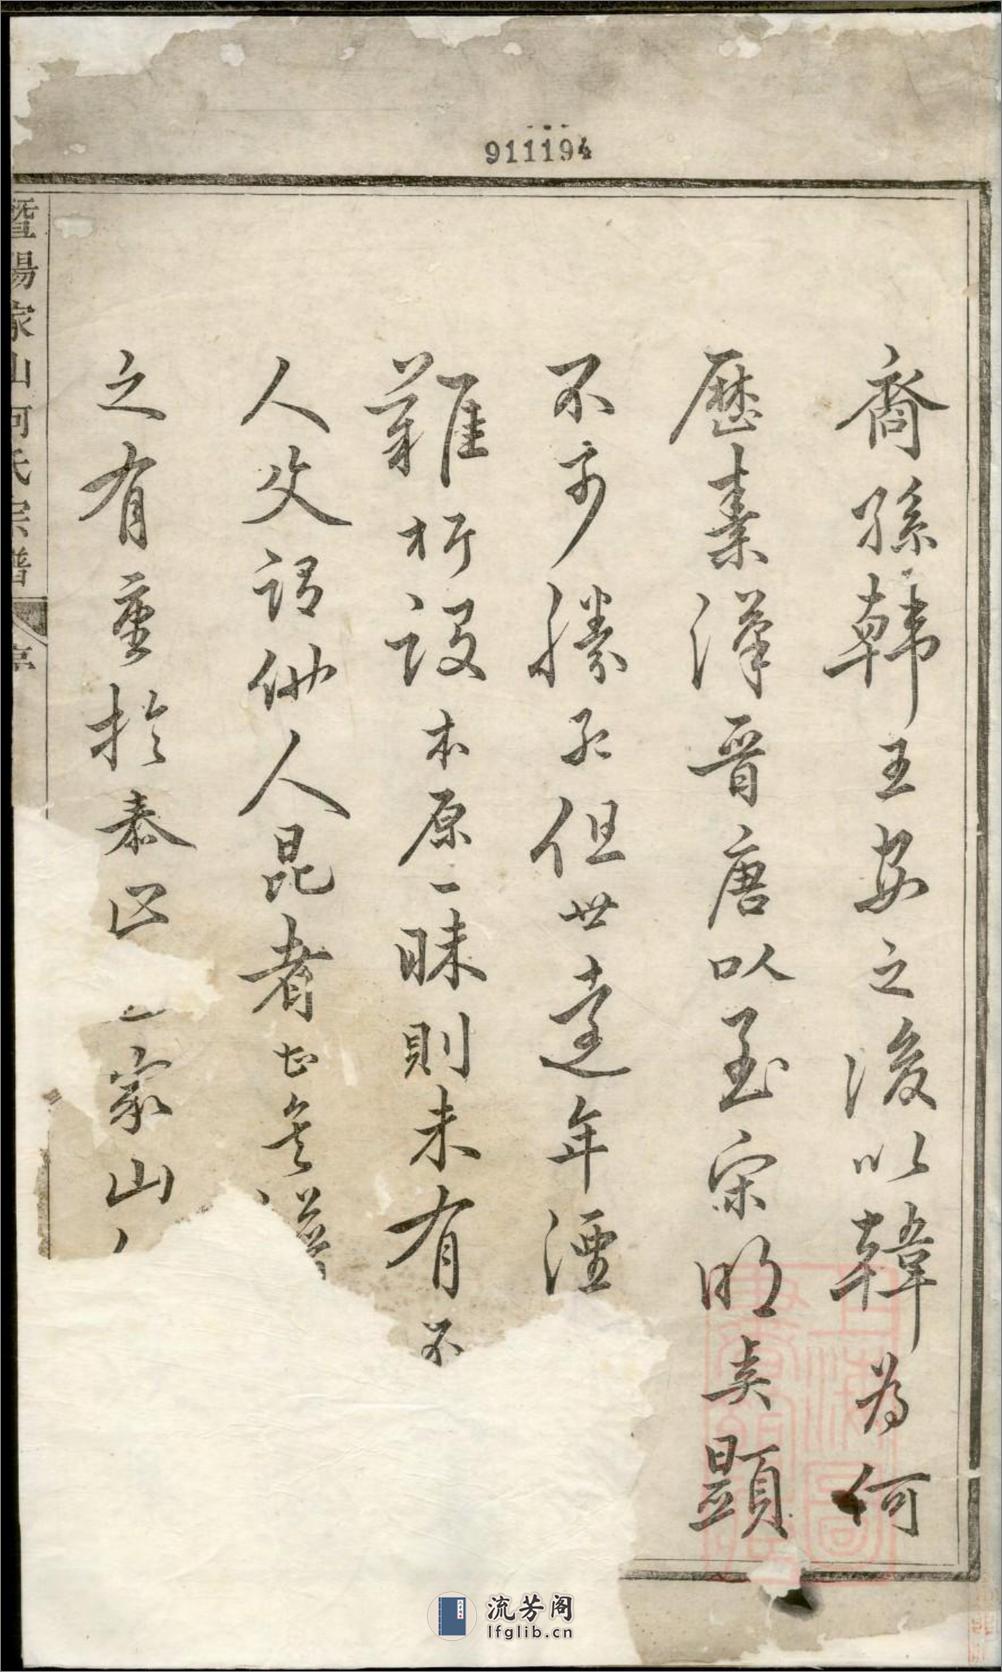 911194
裔孫韓王安之後以韓為何
歷秦漢晉唐以至宋明奕顯
不可勝紀但世遠年湮
難析設本原一昧則未有不
人父謂他人昆者甚矣譜
之有重於泰山 家山
暨陽家山何氏宗譜
序
流芳阁
lfglib.cn